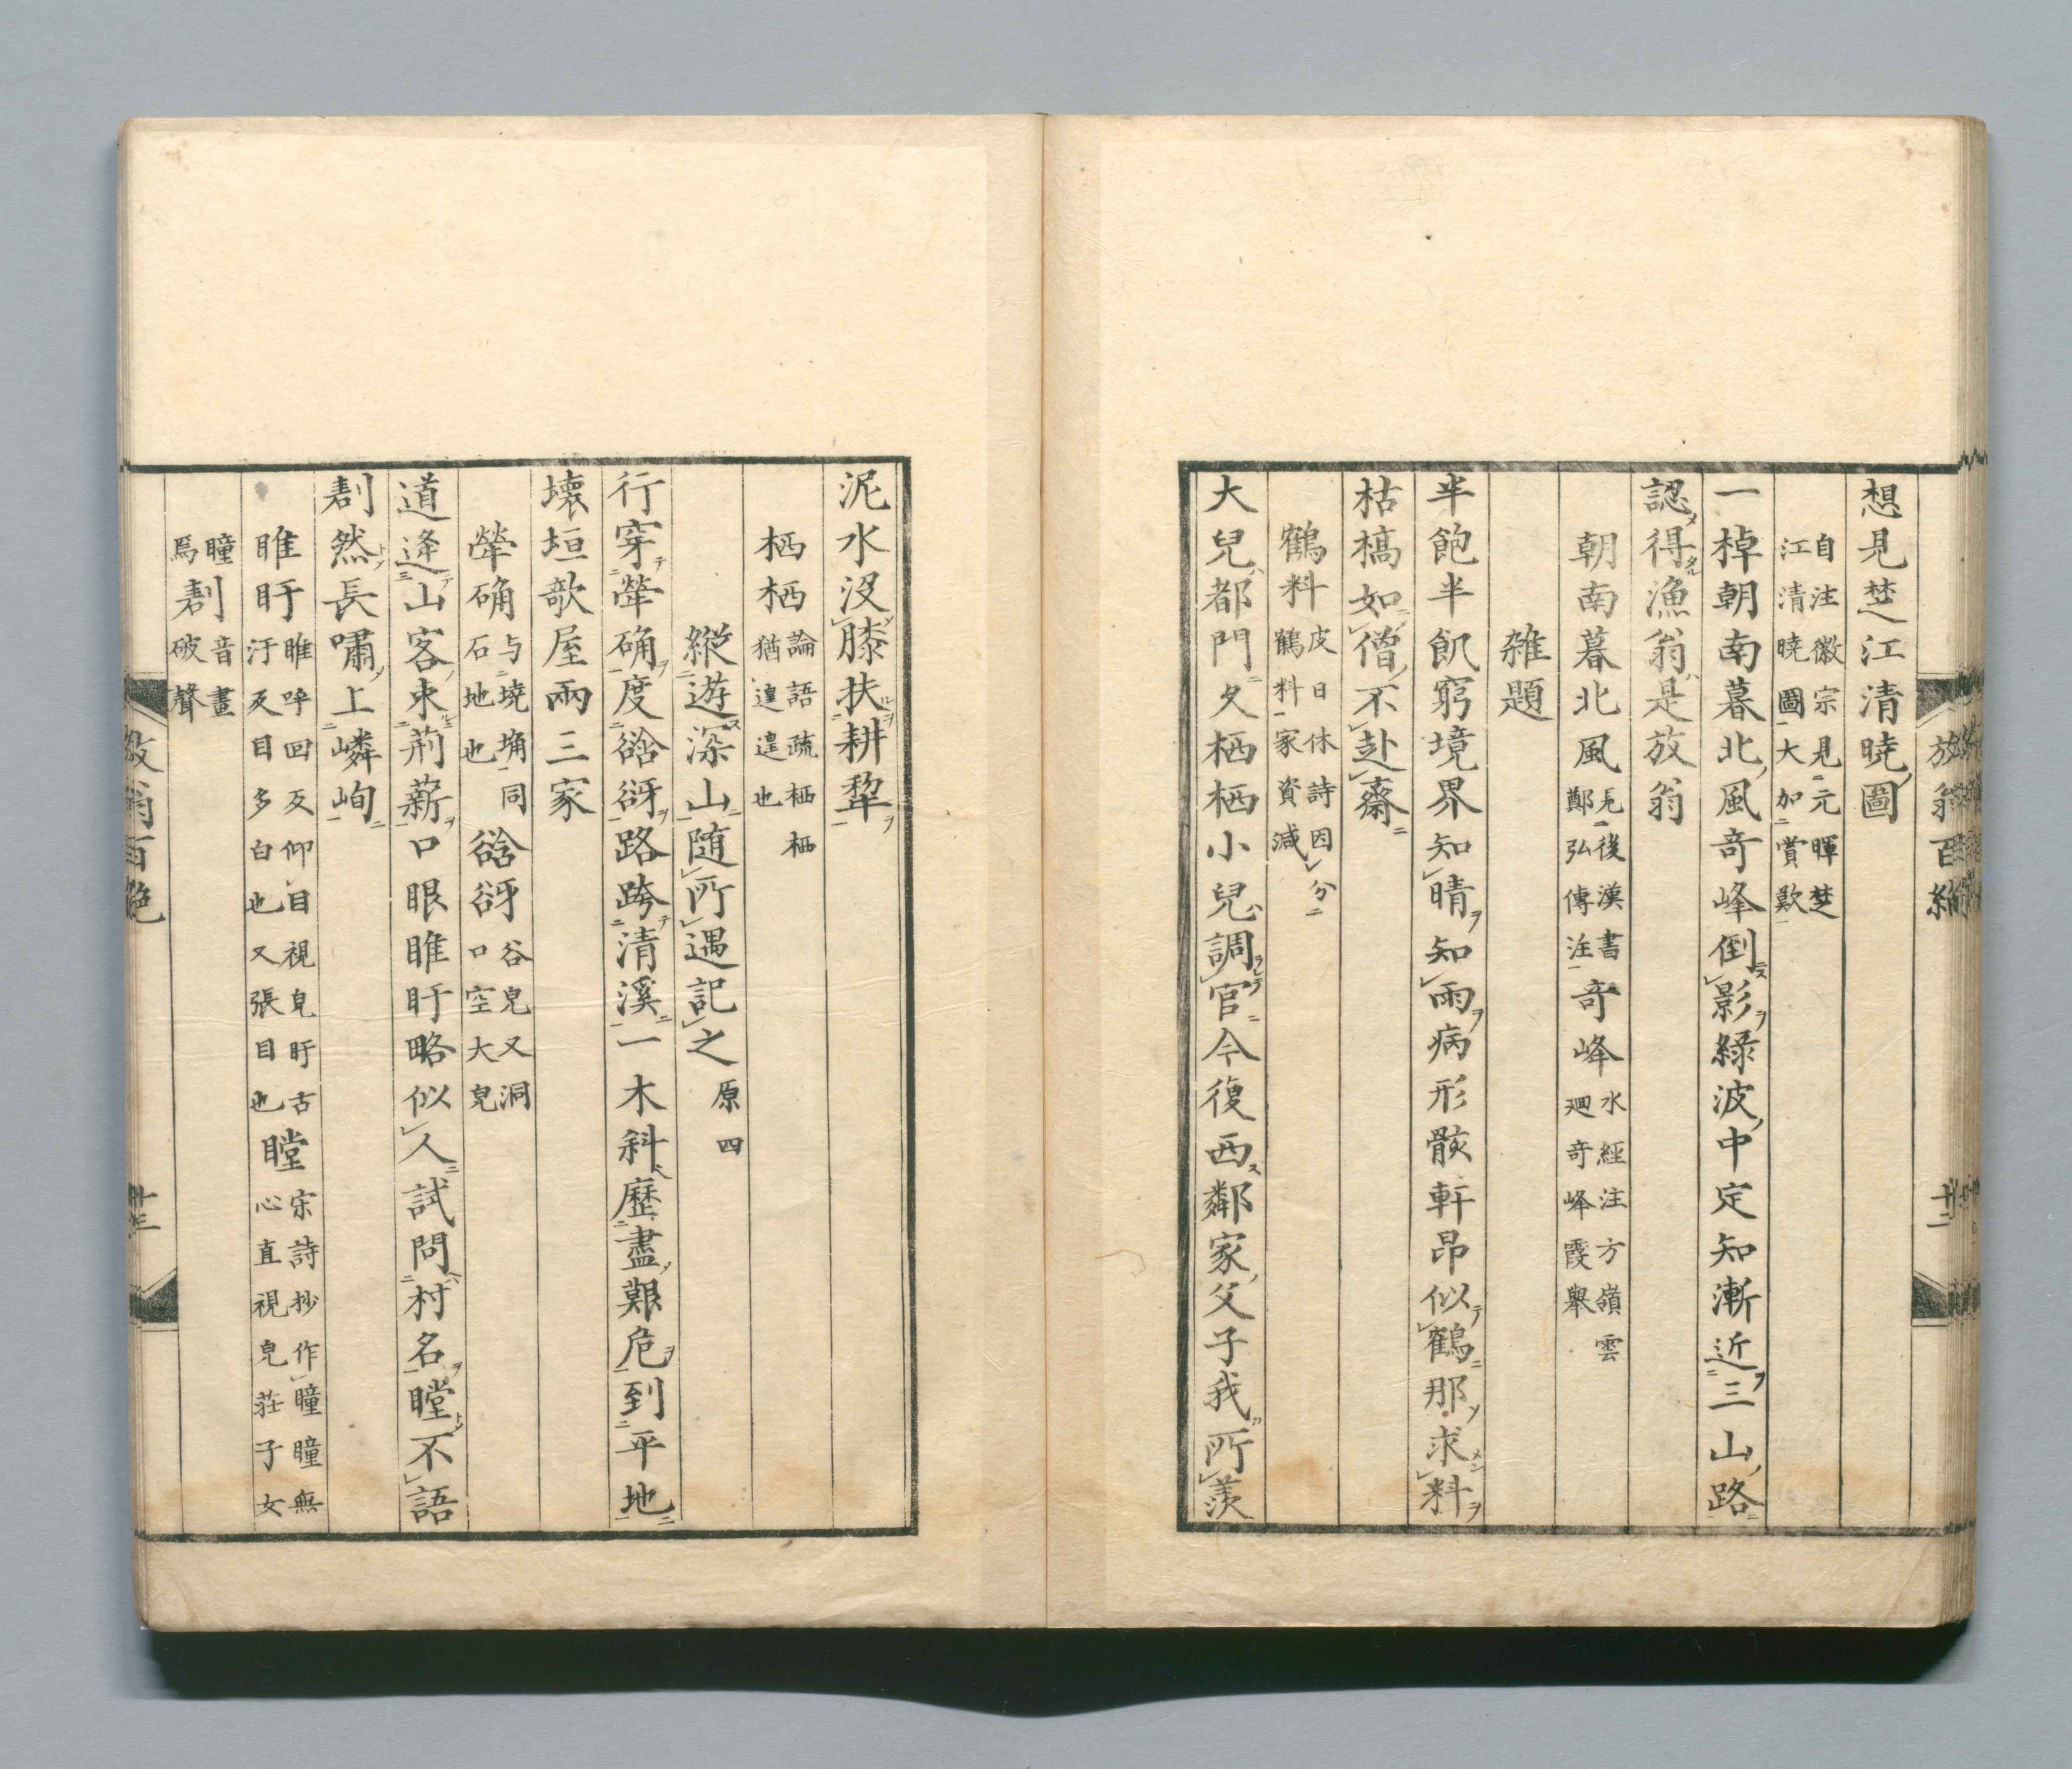 想見楚江清曉圖
自注徽宗見元暉楚
江清曉圖大加賞歎
一棹朝南暮北風奇峰倒影緑波中定知漸近三山路
認得漁翁是放翁
朝南暮北風 見後漢書
鄭弘傳注 奇峰 水經注方嶺雲
廻奇峰霞舉
雑題
半飽半飢窮境界知晴知雨病形骸軒昂似鶴那求料
枯槁如僧不赴齋
鶴料 皮日休詩因分
鶴料家資減
大兒都門夕栖栖小兒調官今復西鄰家父子我所羡
泥水沒膝扶耕犂
栖栖 論語疏栖栖
猶遑遑也
縱遊深山随所遇記之 原四
行穿犖确度谽谺路跨清溪一木科歷盡艱危到平地
壊垣歌屋兩三家
犖确 与墝埆同
石地也 谽谺 谷皃又洞
口空大皃
道逢山客束荊薪口眼睢盱略似人試問村名瞠不語
劃然長嘯上嶙峋
睢盱 睢呼回反仰目視皃盱古
汙反目多白也又張目也 瞠 宋詩抄作瞳瞳無
心直視皃莊子女
瞳
焉 劃 音畫
破聲
放翁百絶
十二
放翁百絶
十三